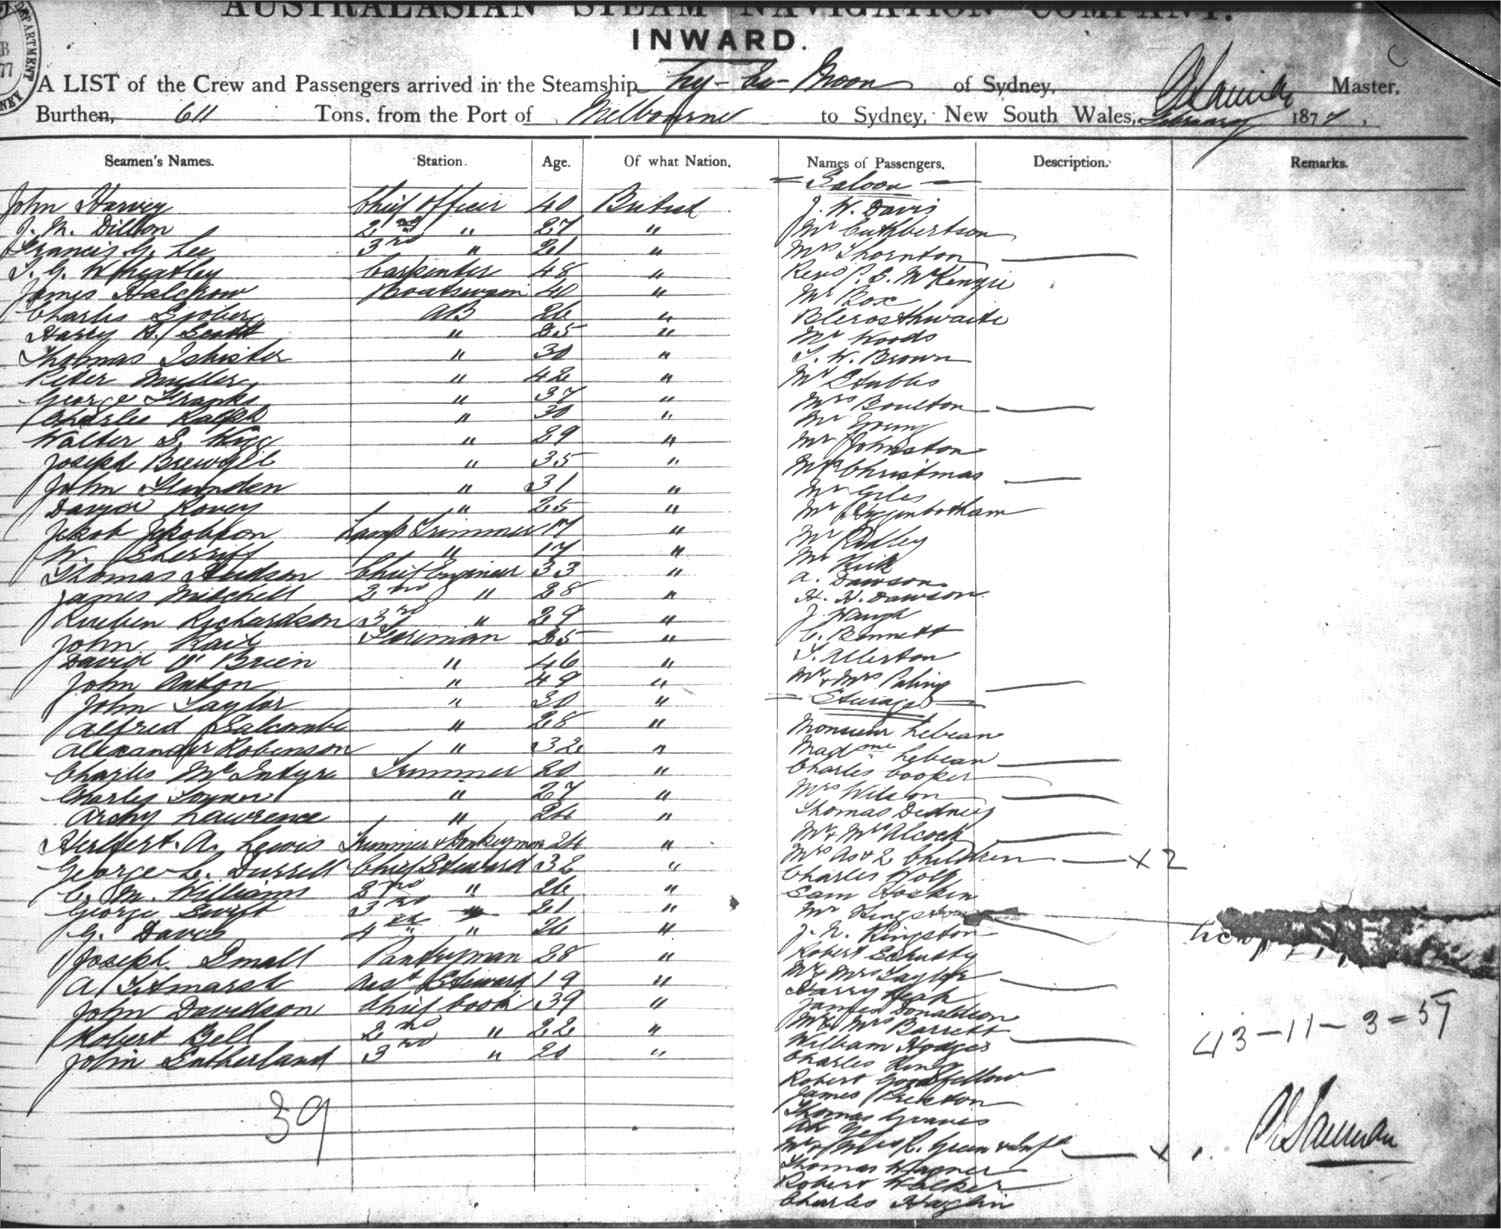 AUSTRALASIAN STEAM NAVIGATION COMPANY.
INWARD.
A LIST of the Crew and Passengers arrived in the Steamship Ly-Ee-Moon of Sydney, Master,
Burthen, 611 Tons, from the Port of Melbourne to Sydney, New South Wales, February 1877,
Seamen's Names. Station. Age. Of what Nation. Names of Passengers. Description. Remarks.
John Harvey Chief Officer 40 British
J. M. Dillon 2nd " 27 "
Francis G. Lee 3rd " 21 "
T. G. Wheatley Carpenter 48 "
James Halcrow Boatswain 40 "
Charles AB 26 "
Harry H. Scott " 25 "
Thomas Isbister " 30 "
Peter Muller " 42 "
George Franks " 37 "
Charles Ralph " 30 "
Walter S. " 29 "
Joseph " 35 "
John " 31 "
David " 25 "
Jakobson Lamp Trimmer 17 "
W. Sherriff " 17 "
Thomas Hudson Chief Engineer 33 "
James Mitchell 2nd " 28 "
Reuben Richardson 3rd " 29 "
John Fireman 25 "
David O'Brien " 46 "
John Anton " 49 "
John Taylor " 30 "
Alfred Salcombe " 28 "
Alexander Robinson " 32 "
Charles McIntyre Trimmer 20 "
Charles " 27 "
Archy Lawrence " 24 "
Herbert A. Lewis Trimmer & Donkeyman 24 "
George L. Durrell Chief Steward 32 "
C. M. Williams 2nd " 26 "
George Swift 3rd " 21 "
G. Davis 4th " 26 "
Joseph Small Pantryman 28 "
A. Titmarsh Asst Steward 19 "
John Davidson Chief Cook 39 "
Robert Bell 2nd " 22 "
John Sutherland 3rd " 20 "
39
Saloon
J. W. Davis
Mr Cuthbertson
Mrs Thornton
Revd P. S. McKenzie
Mr Box
Mr Woods
T. W. Brown
Mr Stubbs
Mrs Boulton
Mr Young
Mr Johnston
Mr Christmas
Mr Giles
Mr Higginbotham
Mr Ridley
Mr Kirk
A. Dawson
H. H. Dawson
J. Waugh
C. Bennett
T. Allerton
Mr & Mrs Paling
Steerage
Monsieur Lebean
Madme Lebean
Charles Cooper
Mrs Wilson
Thomas
Mr McAlcock
Mrs Do & 2 Children x 2
Charles Wolf
Sam Hoskin
Mr Kingston
J. N. Kingston
Robert
Mr & Mrs Taylor
Harry
James Donaldson
Mr & Mrs Barrett
William Hodges
Charles King
Robert Goodfellow
James Preston
Thomas Graves
Mr & Mrs C. Green & Inft x
Thomas Wagner
Robert Walker
Charles
43-11-3=57